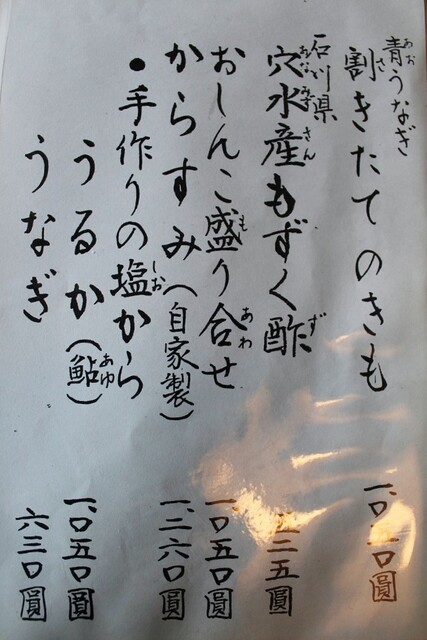 青うなぎ
割きたてのきも
石川県
穴水産もずく酢 二五圓
おしんこ盛り合せ 一、〇五〇圓
からすみ(自家製) 一、二六〇圓
●手作りの塩から
うるか(鮎) 一、〇五〇圓
うなぎ 六三〇圓